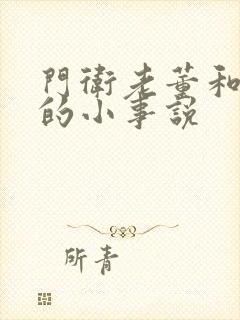 門衛老董和
的小事說
所青